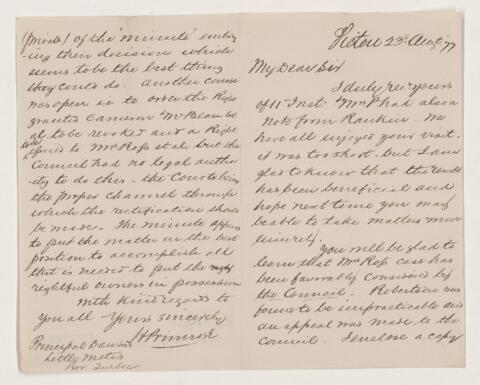 Pictou 23d Augt 77
My Dear Sir
I duly recd yours
of 11 Inst. Mrs P had also a
note from Rankin. We
have all enjoyed your visit.
it was too short. but I am
glad to know that the result
has been beneficial and
hope next time you may
be able to take matters more
leisurely.
You will be glad to
learn that Mrs Ross case has
been favorably considered by
the Council. Robertson was
found to be impracticable and
an appeal was made to the
Council. I enclose a copy
(private) of the "minute" embody
-ing their decision which
seems to be the best thing
they could do. Another course
was open ie to order the Ross
grant to Cameron McBean et
al to be revoked and a Regt
issued to Mrs Ross et al. but the
Council had no legal author
ity to do this - the Courts being
the proper channel through
which the rectification should
be made. The minute appears
to put the matter in the best
position to accomplish all
that is needed to put the
rightful owners in possession
With kind regards to
you all Yours sincerely
H Primrose
Principal Dawson
Little Metis
Prov. Quebec